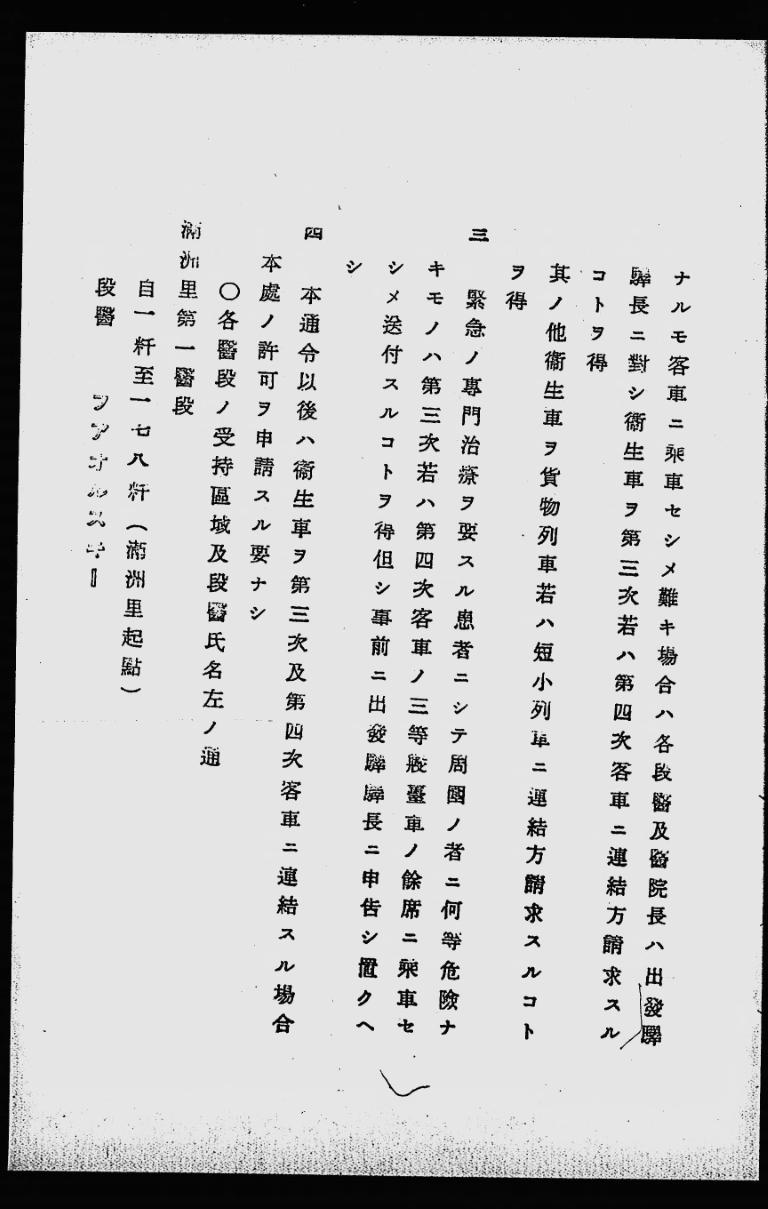 ナルモ客車ニ乘車セシメ難キ場合ハ各段醫及醫院長ハ出發驛
驛長ニ對シ衞生車ヲ第三次若ハ第四次客車ニ連結方請求スル
コトヲ得
其ノ他衞生車ヲ貨物列車若ハ短小列車ニ連結方請求スルコト
ヲ得
三 緊急ノ專門治療ヲ要スル患者ニシテ周圍ノ者ニ何等危險ナ
キモノハ第三次若ハ第四次客車ノ三等寢臺車ノ餘席ニ乘車セ
シメ送付スルコトヲ得但シ事前ニ出發驛驛長ニ申告シ置クヘ
シ
四 本通令以後ハ衞生車ヲ第三次及第四次客車ニ連結スル場合
本處ノ許可ヲ申請スル要ナシ
〇各醫段ノ受持區域及段醫氏名左ノ通
滿洲里第一醫段
自一粁至一七八粁(滿洲里起點)
段醫 フアオルスキー